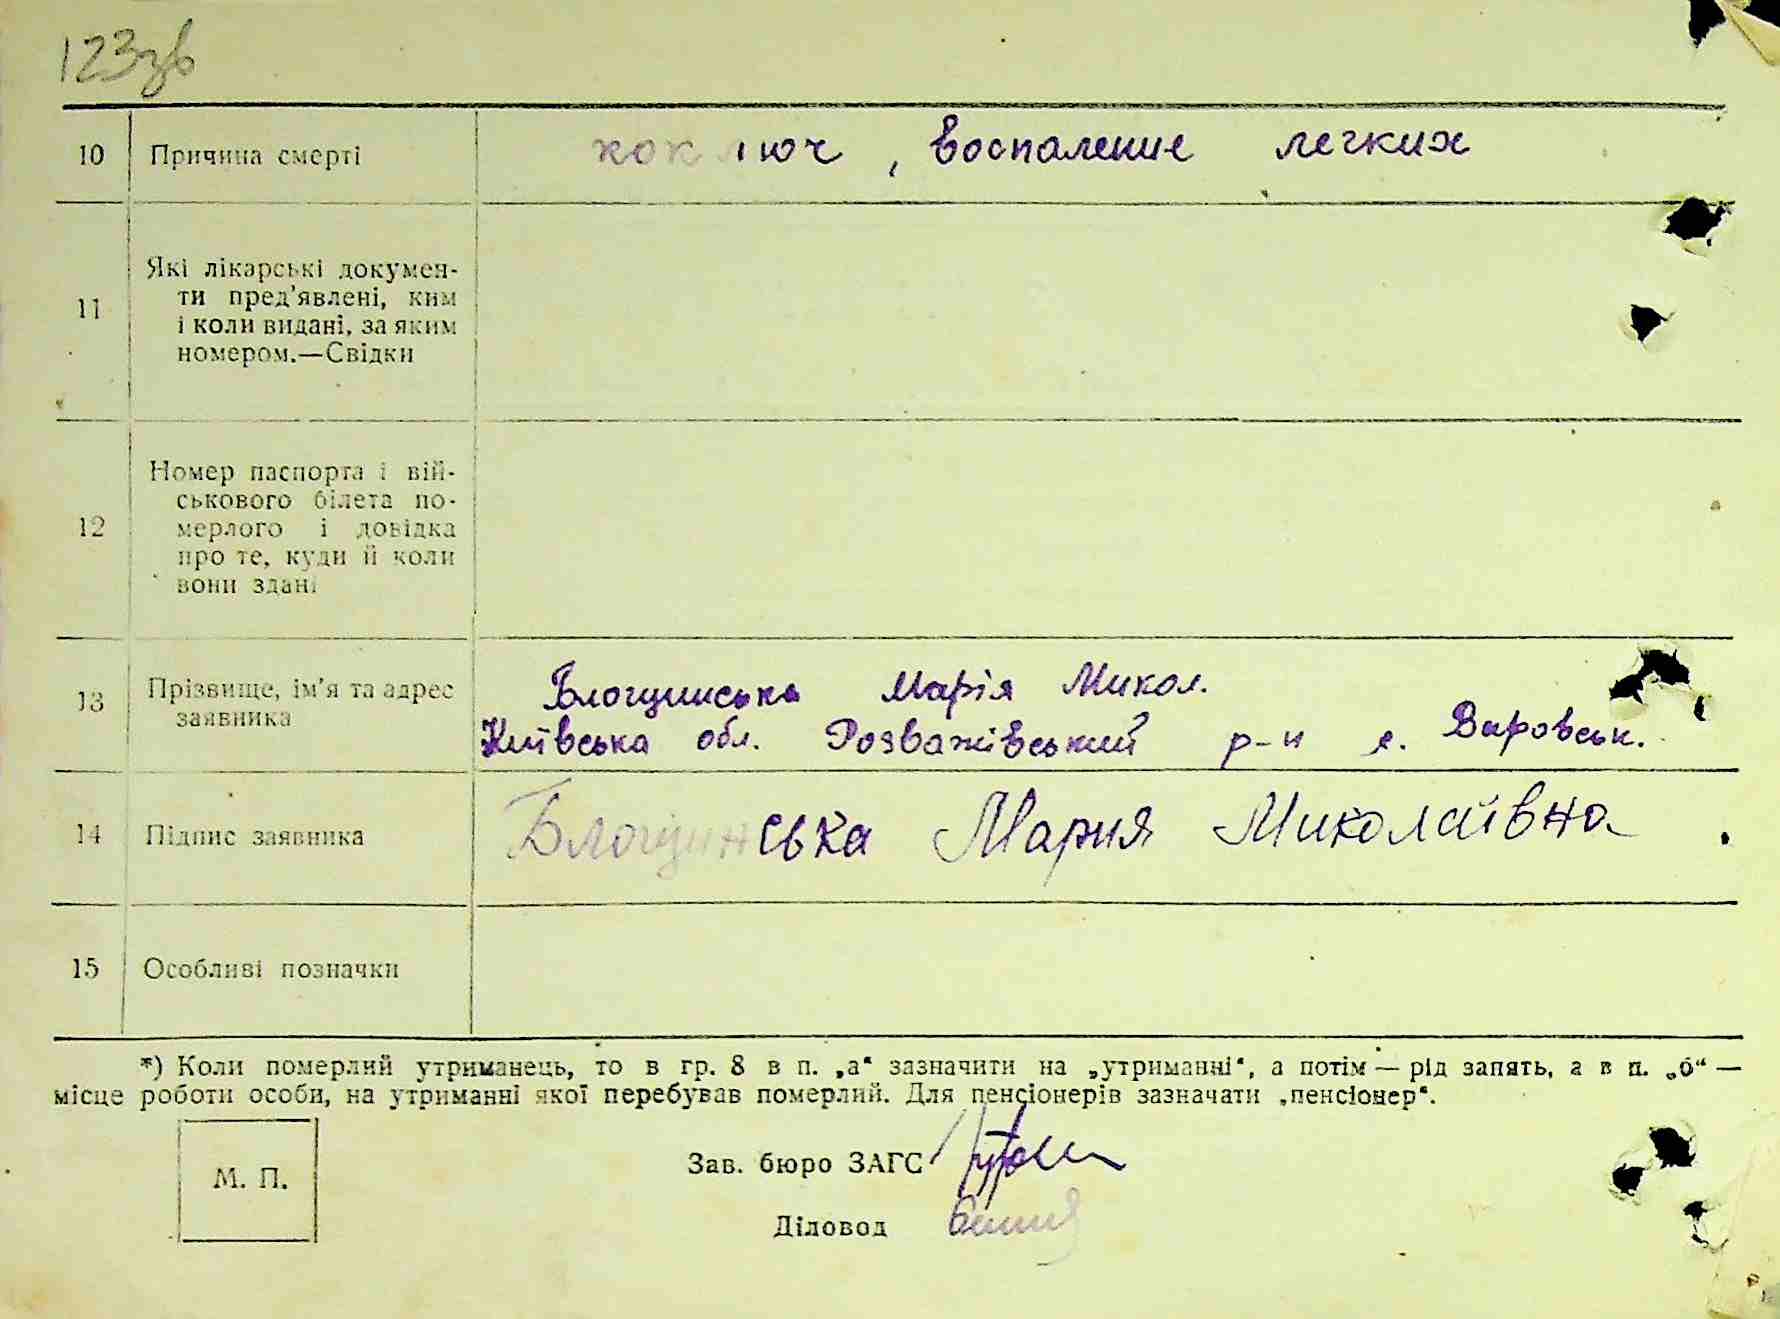 123зв
10 Причина смерті коключ, воспаление легких
11 Які лікарські докумен-
ти пред'явлені, ким
і коли видані, за яким
номером.—Свідки
12 Номер паспорта і вій-
ськового білета по-
мерлого і довідка
про те, куди й коли
вони здані
13 Прізвище, ім'я та адрес
заявника
Блощинська Марія Микол.
Київська обл. Розважівський р-н с.
14 Підпис заявника Блощинська Мария Миколаївна.
15 Особливі позначки
*) Коли померлий утриманець, то в гр. 8 в п. „а“ зазначити на „утриманні“, а потім — рід занять, а в п. „б“ —
місце роботи особи, на утриманні якої перебував померлий. Для пенсіонерів зазначати „пенсіонер“.
М. П.
Зав. бюро ЗАГС
Діловод